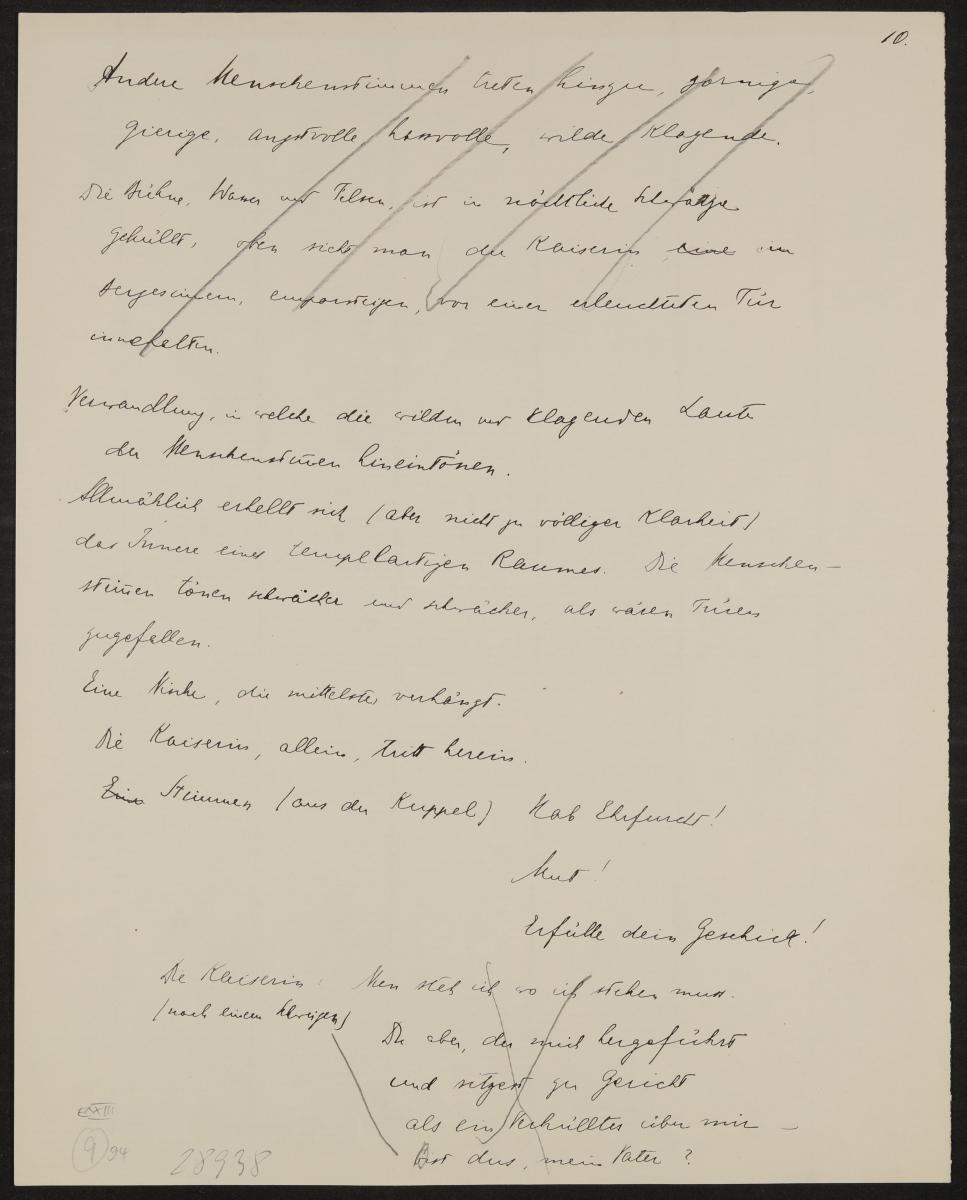 10.
Andere Menschenstimmen treten hinzu, zornige,
gierige, angstvolle hassvolle, wilde klagende.
Die Bühne, Wasser und Felsen, ist in nächtliche Schwärze
gehüllt, oben sieht man die Kaiserin eine im
Bergesinnern, emporsteigen, vor einer erleuchteten Tür
innehalten.
Verwandlung, in welche die wilden und klagenden Laute
der Menschenstim̄en hineintönen.
Allmählich erhellt sich (aber nicht zu völliger Klarheit)
das Innere eines tempelartigen Raumes. Die Menschen-
stim̄en tönen schwächer und schwächer, als wären Türen
zugefallen.
Eine Nische, die mittelste, verhängt.
Die Kaiserin, allein, tritt herein.
Eine Stimmen (aus der Kuppel) Hab Ehrfurcht!
Mut!
Erfülle dein Geschick!
Die Kaiserin: steh ich wo ich stehen muss.
(nach einem Schweigen)
Du aber, der mich hergeführt
und sitzest zu Gericht
als ein Verhüllter über mir –
Bist dus, mein Vater?
9 94
28938